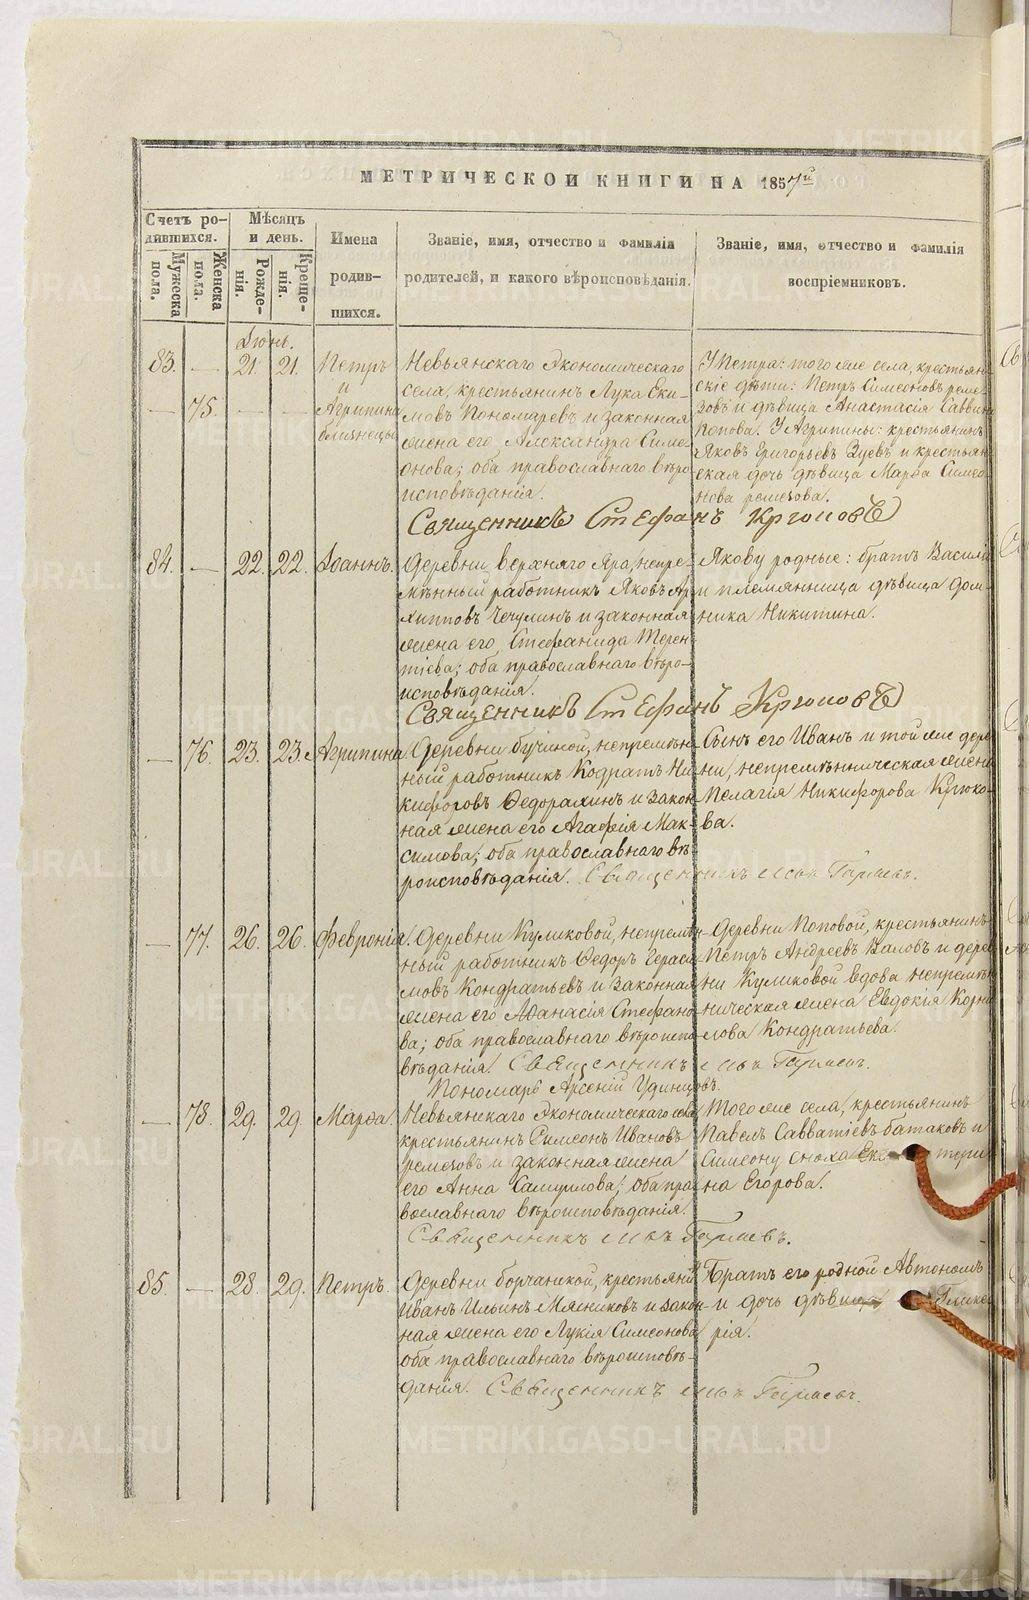 МЕТРИЧЕСКОЙ КНИГИ НА 1857й
Счетъ ро-
дившихся.
Мужеска
пола.
Женска
пола.
Мѣсяцъ
и день.
Рожде-
нія.
Креще-
нія.
Имена
родив-
шихся.
Званіе, имя, отчество и фамилія
родителей, и какого вѣроисповѣданія.
Званіе, имя, отчество и фамилія
воспріемниковъ.
Іюнь.
83. — 21. 21.
— 75. — —
Петръ
и
Агрипина
близнецы
Невьянскаго Экономическаго
села, крестьянинъ Лука Еки-
мовъ Пономаревъ и законная
жена его, Александра Симе-
онова; оба православнаго вѣро
исповѣданія.
У Петра: того же села, крестьян
скіе дѣти: Петръ Симеоновъ реме-
зовъ и дѣвица Анастасія Саввина
Попова. У Агрипины: крестьянинъ
Яковъ Григорьевъ Зуевъ и крестьян
ская дочь дѣвица Марѳа Симео-
нова ремезова.
Священникъ Стефанъ Крюповъ
84. — 22. 22. Іоаннъ.
Деревни верхняго Яра, непре-
мѣнный работникъ Яковъ Ар
хиповъ Чечулинъ и законная
жена его, Стефанида Терен-
тіева; оба православнаго вѣро-
исповѣданія.
Якову родные: братъ Василій
и племянница дѣвица Дом-
ника Никитина.
Священникъ Стефанъ Крюповъ
— 76. 23. 23. Агрипина
Деревни бучиной, непремѣн-
ный работникъ Кодратъ Ни-
кифоровъ Ѳедорахинъ и закон-
ная жена его Агафія Мак-
симова; оба православнаго вѣ-
роисповѣданія. Священникъ
Сынъ его Иванъ и той же дере
ни, непремѣнническая жена
Пелагія Никифорова Крюко-
ва.
— 77. 26. 26. Февронія
Деревни Куликовой, непремѣн-
ный работникъ Ѳедоръ Гераси-
мовъ Кондратьевъ и законная
жена его Аѳанасія Стефано
ва; оба православнаго вѣроиспо-
вѣданія. Священникъ
Деревни Поповой, крестьянинъ
Петръ Андреевъ и дерев
ни Куликовой вдова непремѣн
ническая жена Евдокія Корни
лова Кондратьева.
Пономарь Арсеній Удинцовъ.
— 78. 29. 29. Марѳа.
Невьянскаго Экономическаго села
крестьянинъ Симеонъ Ивановъ
ремезовъ и законная жена
его Анна Самуилова; оба пра
вославнаго вѣроисповѣданія.
Того же села, крестьянинъ
Павелъ Савватіевъ батаковъ и
Симеону сноха Ека тери
на Егорова.
Священникъ
85. — 28. 29. Петръ.
Деревни борчанской, крестьянинъ
Иванъ Ильинъ Мясниковъ и закон-
ная жена его Лукія Симеонова
оба православнаго вѣроисповѣ-
данія. Священникъ
Братъ его родной Автономъ
и дочь дѣвица Глике
рія.
METRIKI.GASO-URAL.RU